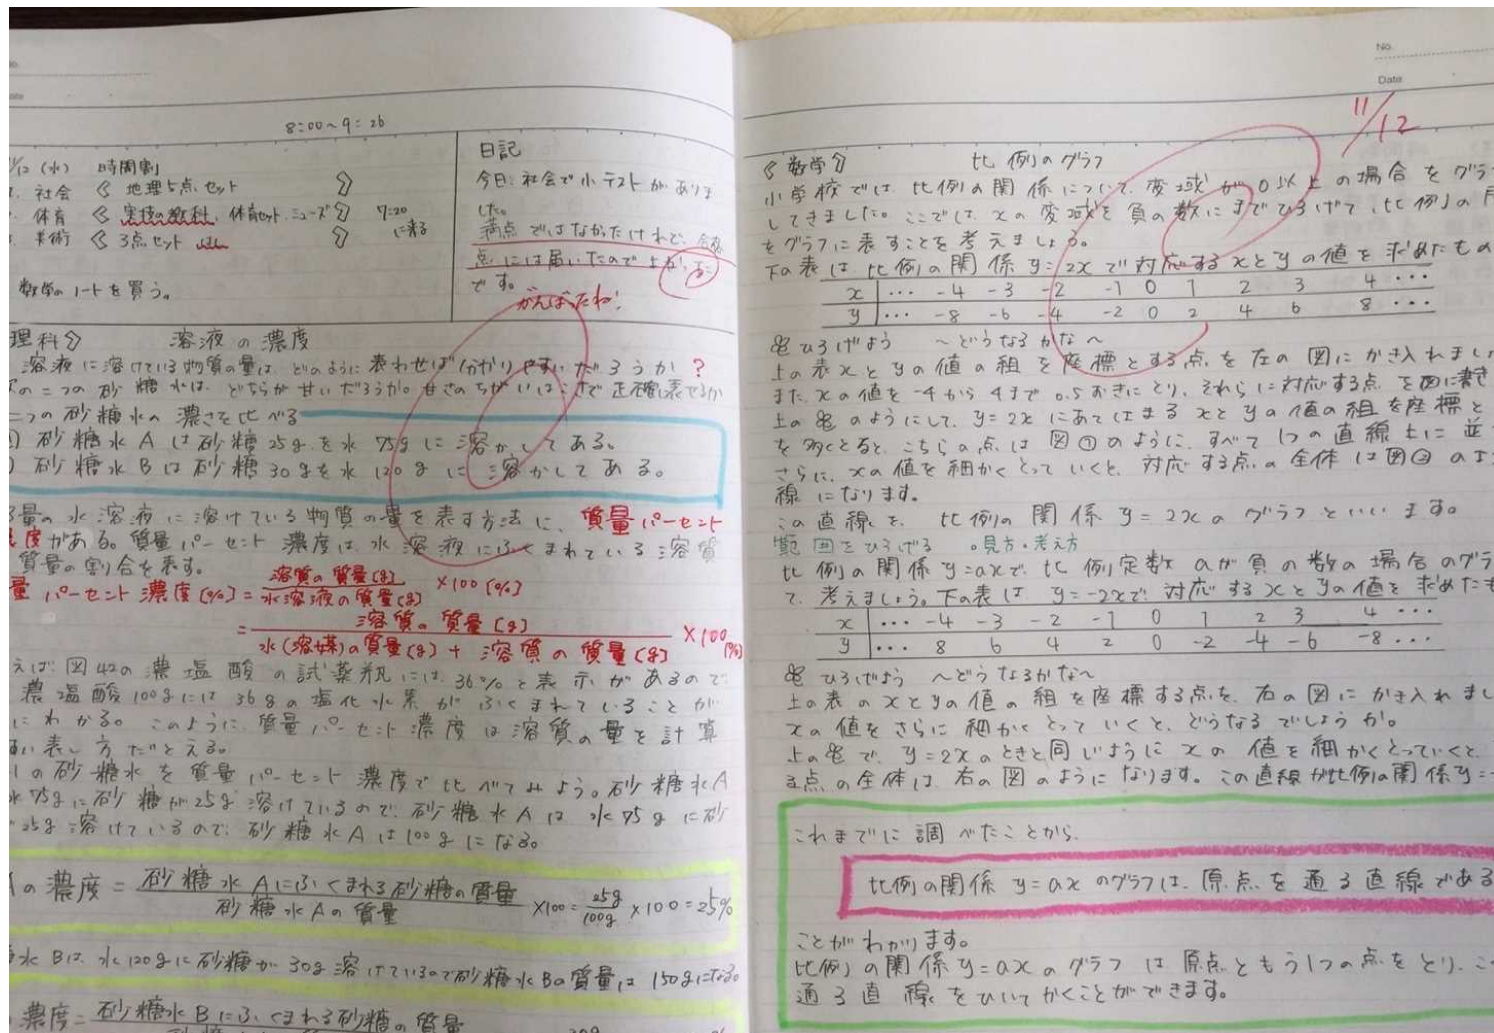 8:00~9:26
/12 (水) 時間割
社会 《 地理5点セット 》
体育 《 実技の教科, 体育セット, シューズ 》 7:20に来る
美術 《 3点セット 》
数学のノートを買う。
日記
今日、社会で小テストがありま
した。
満点ではなかたけれど、合格
点には届いたのでよかった
です。
がんばったね!
理科》 溶液の濃度
溶液に溶けている物質の量は、どのように表わせば分かりやすいだろうか?
の二つの砂糖水は、どちらが甘いだろうか。甘さのちがいは
二つの砂糖水の濃さを比べる
) 砂糖水Aは砂糖25gを水75gに溶かしてある。
) 砂糖水Bは砂糖30gを水120gに溶かしてある。
量の水溶液に溶けている物質の量を表す方法に、質量パーセント
度がある。質量パーセント濃度は、水溶液にふくまれている溶質
質量の割合を表す。
量パーセント濃度[%]=溶質の質量(g)/水溶液の質量(g)×100[%]
=溶質の質量[g]/水(溶媒)の質量(g)+溶質の質量(g)×100[%]
えば、図42の濃塩酸の試薬瓶には、36%と表示があるので
濃塩酸100gには36gの塩化水素がふくまれていることが
にわかる。このように、質量パーセント濃度は溶質の量を計算
すい表し方だといえる。
の砂糖水を質量パーセント濃度で比べてみよう。砂糖水A
水75gに砂糖が25g溶けているので、砂糖水Aは水75gに砂
25g溶けているので、砂糖水Aは100gになる。
Aの濃度=砂糖水Aにふくまれる砂糖の質量/砂糖水Aの質量×100=25g/100g×100=25%
水Bは、水120gに砂糖が30g溶けているので砂糖水Bの質量は150gになる。
濃度=砂糖水Bにふくまれる砂糖の質量
No.
Date
11/12
《数学》 比例のグラフ
小学校では、比例の関係について、変域が0以上の場合をグラ
してきました。ここでは、xの変域を負の数にまでひろげて、比例の
をグラフに表すことを考えましょう。
下の表は、比例の関係y=2xで対応するxとyの値を求めたもの
x … -4 -3 -2 -1 0 1 2 3 4 …
y … -8 -6 -4 -2 0 2 4 6 8 …
ひろげよう ~どうなるかな~
上の表xとyの値の組を座標とする点を左の図にかき入れまし
また、xの値を-4から4まで0.5おきにとり、それらに対応する点を図に書き
上ののようにして、y=2xにあてはまるxとyの値の組を座標と
を多くとると、こちらの点は図①のように、すべて1つの直線上に並
さらに、xの値を細かくとっていくと、対応する点の全体は図②のよ
線になります。
この直線を、比例の関係y=2xのグラフといいます。
範囲をひろげる 。見方・考え方
比例の関係y=axで、比例定数aが負の数の場合のグラ
て、考えましょう。下の表は y=-2xで対応するxとyの値を求めたも
x … -4 -3 -2 -1 0 1 2 3 4 …
y … 8 6 4 2 0 -2 -4 -6 -8 …
ひろげよう ~どうなるかな~
上の表のxとyの値の組を座標する点を、右の図にかき入れまし
xの値をさらに細かくとっていくと、どうなるでしょうか。
上ので、y=2xのときと同じようにxの値を細かくとっていくと
る点の全体は右の図のようになります。この直線が比例の関係y=-
これまでに調べたことから、
比例の関係y=axのグラフは、原点を通る直線である
ことがわかります。
比例の関係y=axのグラフは原点ともう1つの点をとり、こ
通る直線をひいてかくことができます。